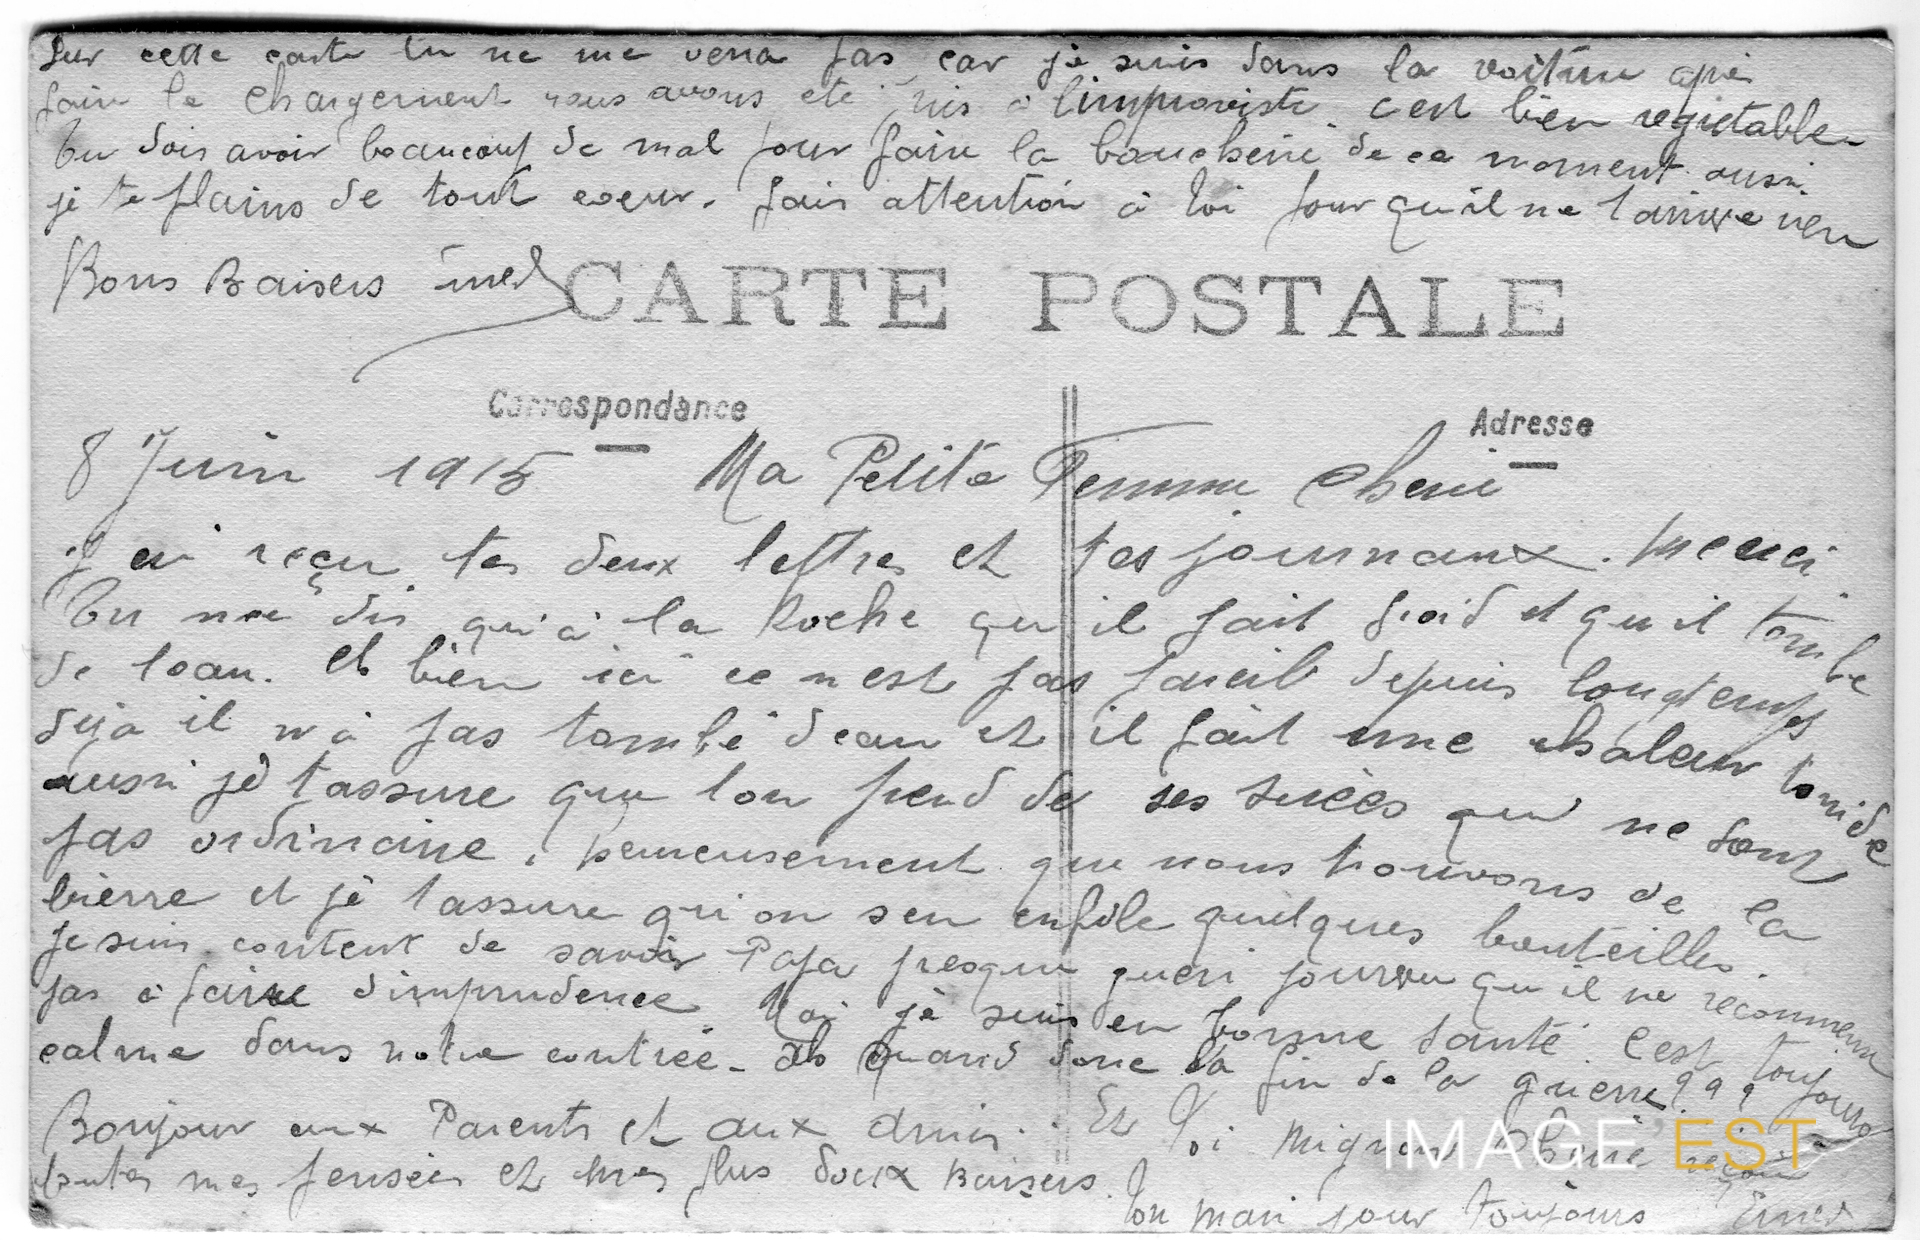 Sur cette carte tu ne me verra pas car je suis dans la voiture apres
faire le chargement nous avons eté pris à l'improviste. c'est bien regretable.
Tu dois avoir beaucoup de mal pour faire la boucherie de ce moment aussi
je te plains de tout coeur. fais attention à toi pour qu'il ne t'arrive rien
Bons Baisers
CARTE POSTALE
Correspondance
Adresse
8 Juin 1915 Ma Petite Femme Cherie
J'ai reçu tes deux lettres et tes journaux. Merci
Tu me dis qu'à la Roche qu'il fait froid et qu'il tombe
de l'eau. Et bien ici ce n'est pas pareil depuis longtemps
deja il n'à pas tombé d'eau et il fait une chaleur torride
aussi je t'assure que l'on prend de ses suées qui ne sont
pas ordinaire, heureusement que nous trouvons de la
bierre et je t'assure qu'on s'en enfile quelques bouteilles.
Je suis content de savoir Papa presque gueri pourvu qu'il ne recommence
pas à faire d'imprudence Moi je suis en bonne santé. C'est toujours
calme dans notre contrée. Ah Quand donc la fin de la guerre ? ? ?
Bonjour aux Parents et aux amis. Et Toi Mignone Cherie reçois
toutes mes pensées et mes plus doux Baisers.
Ton mari pour toujours
IMAGE'EST